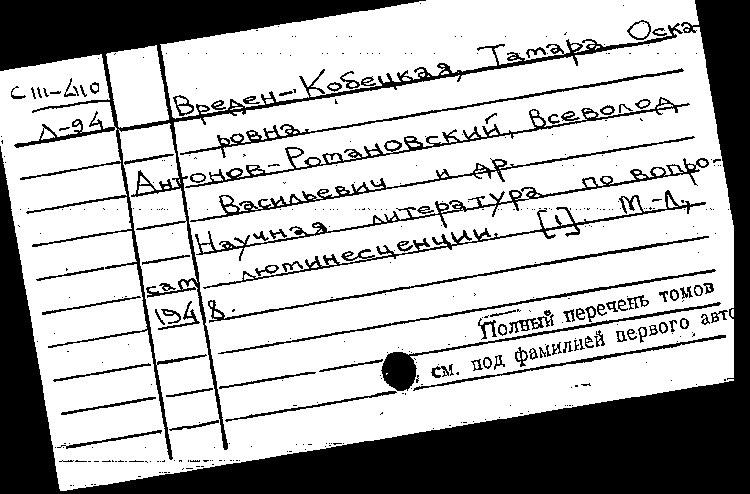 С III-410
Л-94
Вреден-Кобецкая, Тамара Оска-
ровна.
Антонов-Романовский, Всеволод
Васильевич и др.
Научная литература по вопро-
сам люминесценции. [1]. М.-Л.,
1948.
Полный перечень томов
см. под фамилией первого авто